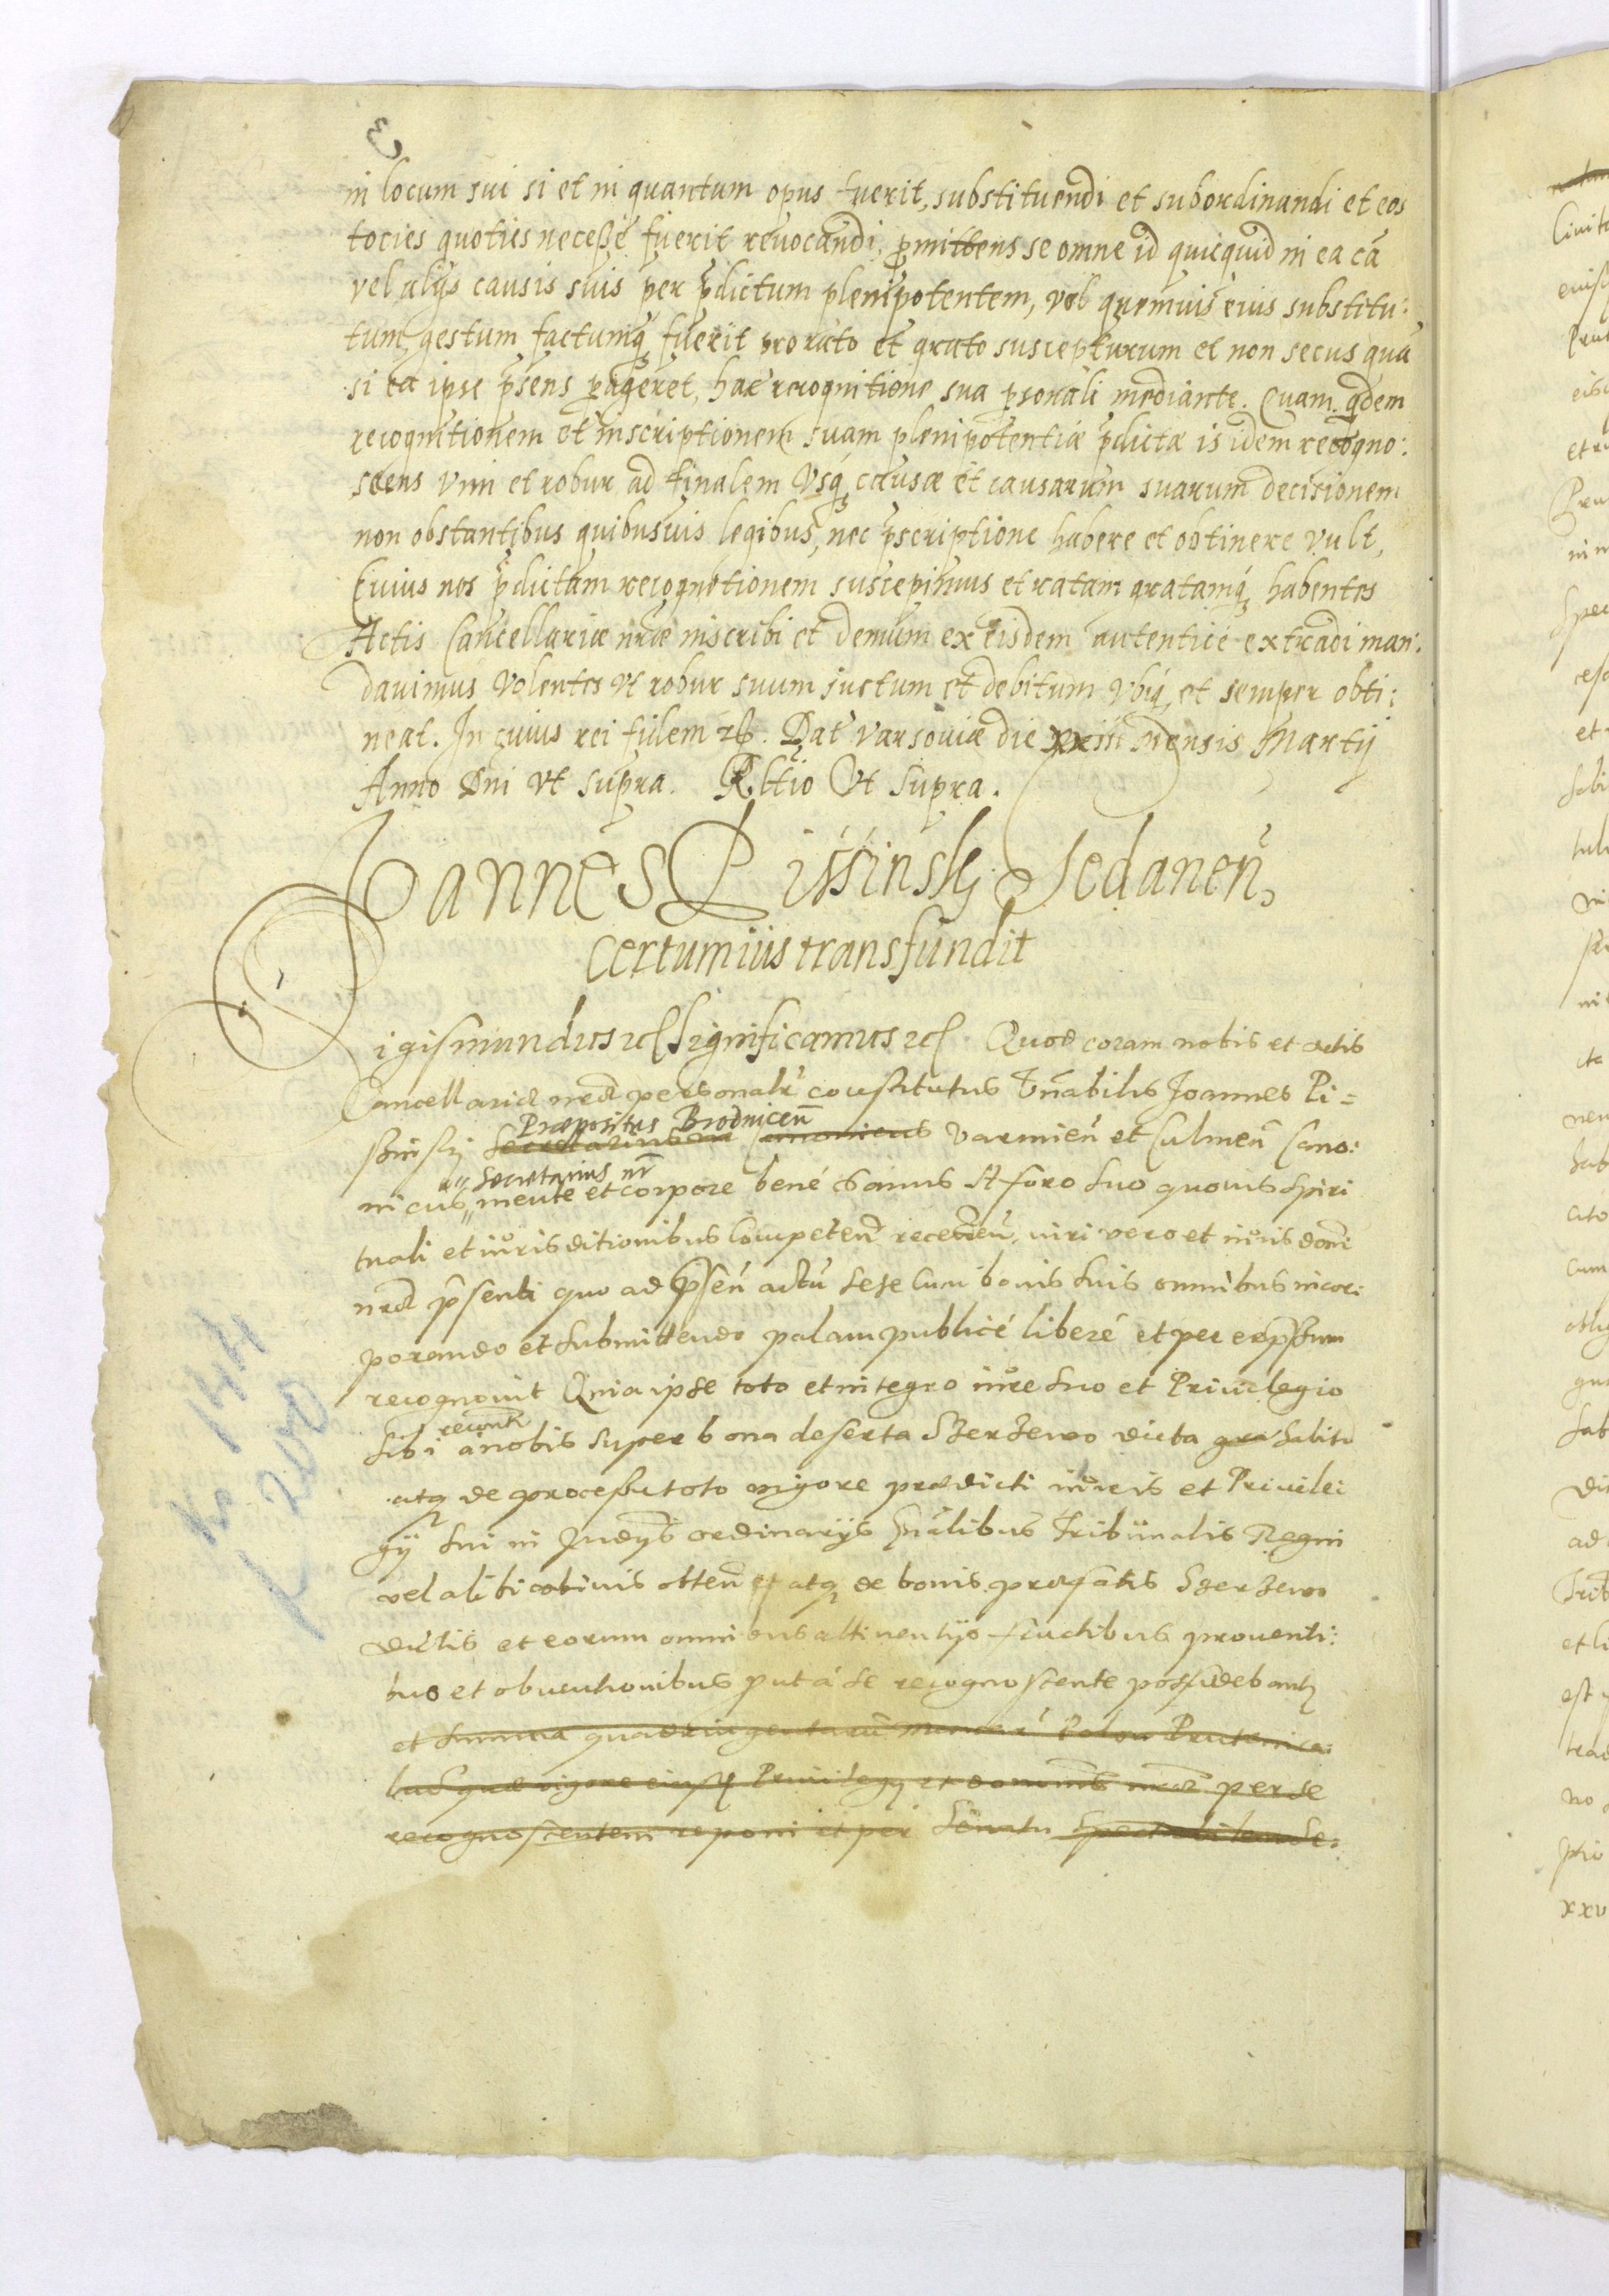 in locum sui si et in quantum opus fuerit, substituendi et subordinandi et eos
tocies quoties necesse fuerit reuocandi, p̱mittens se omne id quicquid in ea cā
vel alijs causis suis per p̄dictum plenipotentem, vel quemuis eius substitu:
tum gestum factumq̨ fuerit pro rato et grato suscepturum et non secus quā
si ea ipse p̄sens p̱ageret, hac recognitione sua p̱sonali mediante. Quam qdem
recognitionem et inscriptionem suam plenipotentiæ p̄dictæ is idem recogno:
scens vim et robur ad finalem Vsq̨ causæ et causarum suarum decisionem
non obstantibus quibusuis legibus, nec p̄scriptione habere et obtinere vult,
Cuius nos p̄dictam recognitionem suscepimus et ratam gratamq̨ habentes
Actis Cancellariæ nr̄æ inscribi et demum ex eisdem autenticè extradi man:
dauimus Volentes vt robur suum justum et debitum vbiq̨ et semper obti:
neat. In cuius rei fidem etc. Dat Varsouiæ die xxiii mensis Martij
Anno Dni vt supra. Rltio Vt supra.
Joannes Pissinskj Sedanen̄
certum ius transfundit
Sigismundus etc Significamus etc. Quod coram nobis et actis
Cancellariæ nr̄æ personalr̄ constitutus Vn̄abilis Joannes Pi=
Præpositus Brodnicen̄
ssinskj Secretarius Canonicus Varmien̄ et Culmen̄ Cano:
Secretarius nr̄
nicus mente et corpore bené sanus A foro suo quouis spiri
tuali et iurisditionibus Competen̄ receden̄, iuri vero et iuris
nr̄æ p̄senti quo ad p̄sen̄ actū sese cum bonis suis omnibus incor:
porando et submittendo palam publicé liberé et per exp̄ssum
recognouit Quia ipse toto et integro iure suo et Priuilegio
sibi à nobis super bona deserta Szerzewo dicta gra
atq̨ de processu toto vigore prædicti iuris et Priuile:
gij sui in Judijs ordinarijs gn̄alibus Tribunalis Regni
vel alibi vbiuis obten̄ et atq̨ de bonis præfatis Szerzewo
dictis et eorum omnibus attinentijs fructibus prouenti:
bus et obuentionibus
et summa quadringentarū Marcarū Polon Prutenica:
lium quæ vigore eiusd Priuilegij et nr̄æ per se
recognoscentem reponi et per
No 144
K 200